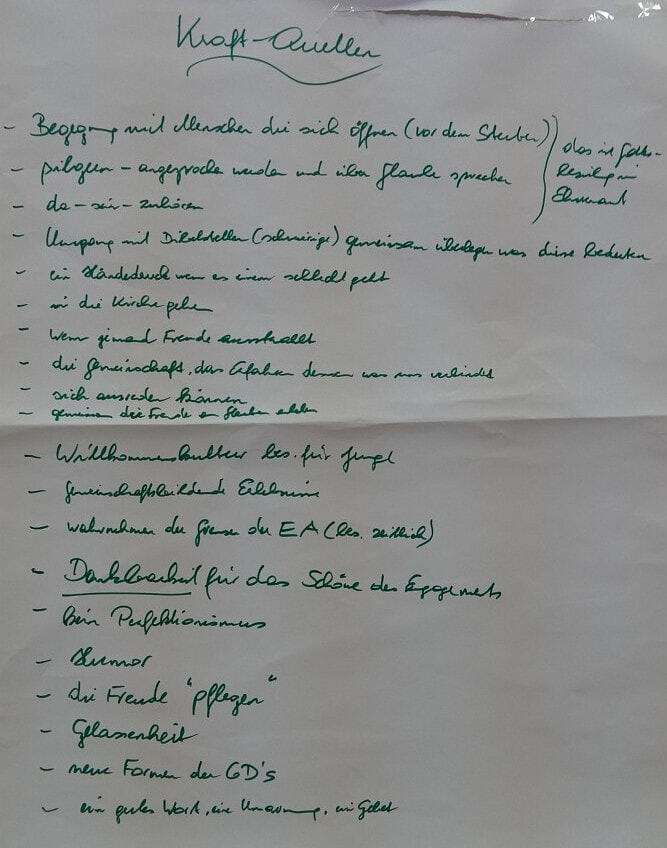 Kraft-Quellen
- Begegnung mit Menschen die sich öffnen (vor dem Sterben)
das ist Gottes-
beziehung im
Ehrenamt
- pilgern - angesprochen werden und über Glaube sprechen
- da-sein-zuhören
- Umgang mit Bibelstellen (schwierige) gemeinsam überlegen was diese bedeuten
- ein Händedruck wenn es einem schlecht geht
- in die Kirche gehen
- wenn jemand Freude ausstrahlt
- die Gemeinschaft, das Erfahren dessen was uns verbindet
- sich ausreden können
- gemeinsam die Freude am Glauben erleben
- Willkommenskultur bes. für Junge
- gemeinschaftsbildende Erlebnisse
- wahrnehmen der Grenzen der EA (bes. zeitlich)
- Dankbarkeit für das Schöne des Engagements
- kein Perfektionismus
- Humor
- die Freude "pflegen"
- Gelassenheit
- neue Formen der GD's
- ein gutes Wort, eine Umarmung, ein Gebet